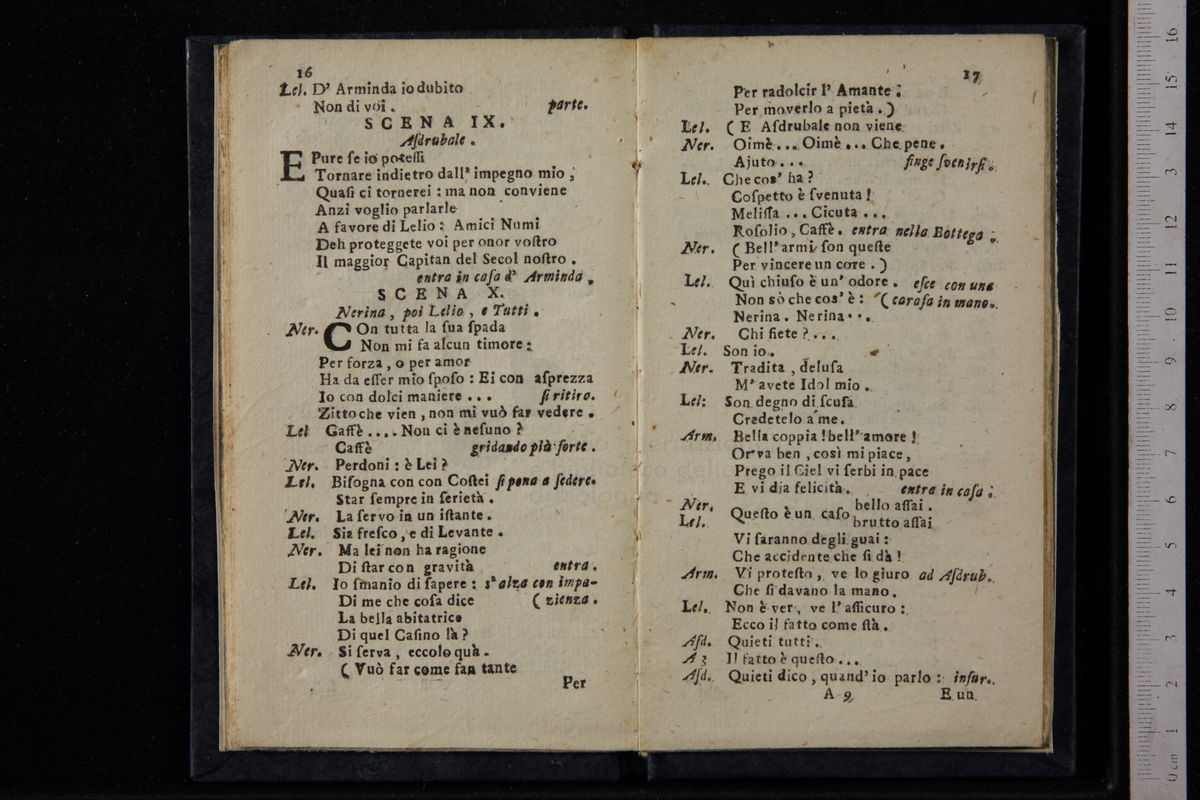 16
Lel. D' Arminda io dubito
Non di voi. parte.
SCENA IX.
Aſdrubale.
E Pure ſe io poteſſi
Tornare indietro dall' impegno mio;
Quaſi ci tornerei: ma non conviene
Anzi voglio parlarle
A favore di Lelio: Amici Numi
Deh proteggete voi per onor voſtro
Il maggior Capitan del Secol noſtro.
entra in caſa d' Arminda.
SCENA X.
Nerina, poi Lelio, e Tutti.
Ner. COn tutta la ſua ſpada
Non mi fa alcun timore:
Per forza, o per amor
Ha da eſſer mio ſpoſo: Ei con aſprezza
Io con dolci maniere ... ſi ritira.
Zitto che vien, non mi vuò far vedere.
Lel Gaffè .... Non ci è neſuno?
Caffè gridando più forte.
Ner. Perdoni: è Lei?
Lel. Biſogna con con Coſtei ſi pone a ſedere.
Star ſempre in ſerietà.
Ner. La ſervo in un iſtante.
Lel. Sia freſco, e di Levante.
Ner. Ma lei non ha ragione
Di ſtar con gravità entra.
Lel. Io ſmanio di ſapere: s'alza con impa-
Di me che coſa dice (zienza.
La bella abitatrice
Di quel Caſino là?
Ner. Si ſerva, eccolo quà.
(Vuò far come fan tante
Per
17
Per radolcir l' Amante:
Per moverlo a pietà.)
Lel. (E Aſdrubale non viene
Ner. Oimè... Oimè... Che pene.
Ajuto... finge ſvenirſi.
Lel. Che cos' ha?
Coſpetto è ſvenuta!
Meliſſa... Cicuta...
Roſolio, Caffè. entra nella Bottega.
Ner. (Bell' armi ſon queſte
Per vincere un core.)
Lel. Quì chiuſo è un' odore. eſce con una
Non sò che cos' è: (carafa in mano.
Nerina. Nerina...
Ner. Chi ſiete?...
Lel. Son io.
Ner. Tradita, deluſa
M' avete Idol mio.
Lel: Son degno di ſcuſa
Credetelo a me.
Arm. Bella coppia! bell' amore!
Orva ben, così mi piace,
Prego il Ciel vi ſerbi in pace
E vi dia felicità. entra in caſa.
Ner. bello aſſai.
Queſto è un caſo
Lel. brutto aſſai
Vi ſaranno degli guai:
Che accidente che ſi dà!
Arm. Vi proteſto, ve lo giuro ad Aſdrub.
Che ſi davano la mano.
Lel. Non è ver, ve l' aſſicuro:
Ecco il fatto come ſtà.
Aſd. Quieti tutti.
A 3 Il fatto è queſto...
Aſd. Quieti dico, quand' io parlo: infur.
A 9 E un